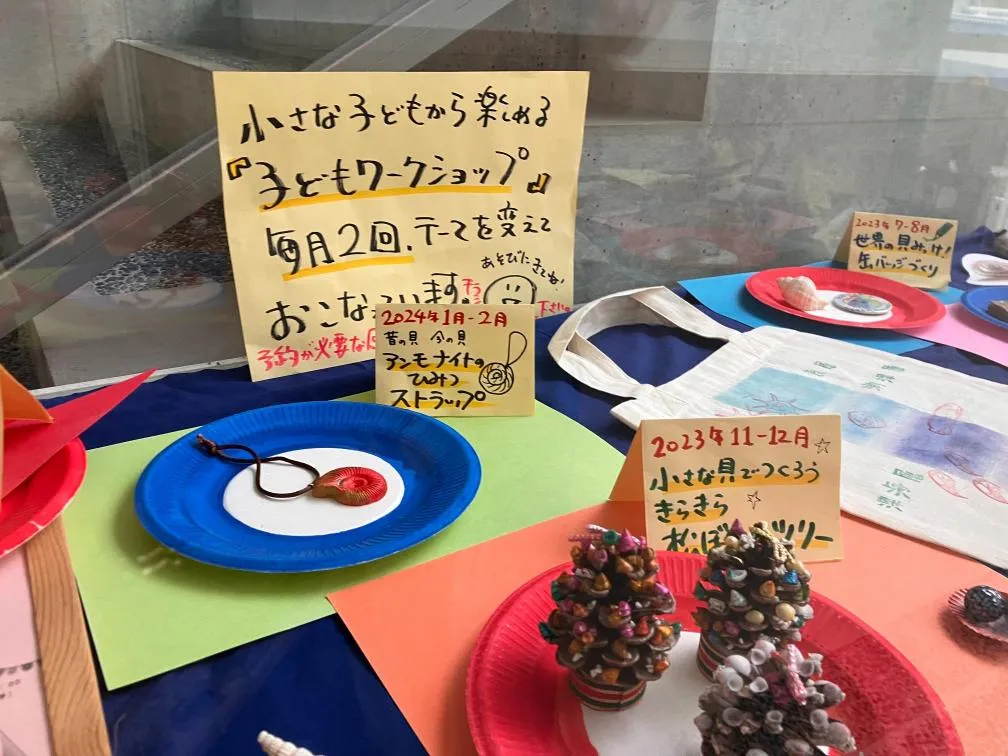 小さな子どもから楽しめる
『子どもワークショップ』
毎月2回、テーマを変えて
おこなっています。
あそびにきてね!
下さい。
予約が必要な
2024年1月-2月
昔の貝 今の貝
アンモナイトの
ひみつ
ストラップ
2023年11-12月
小さな貝でつくろう
きらきら
松ぼ ツリー
2023年7-8月
世界の貝みっけ!
缶バッジづくり